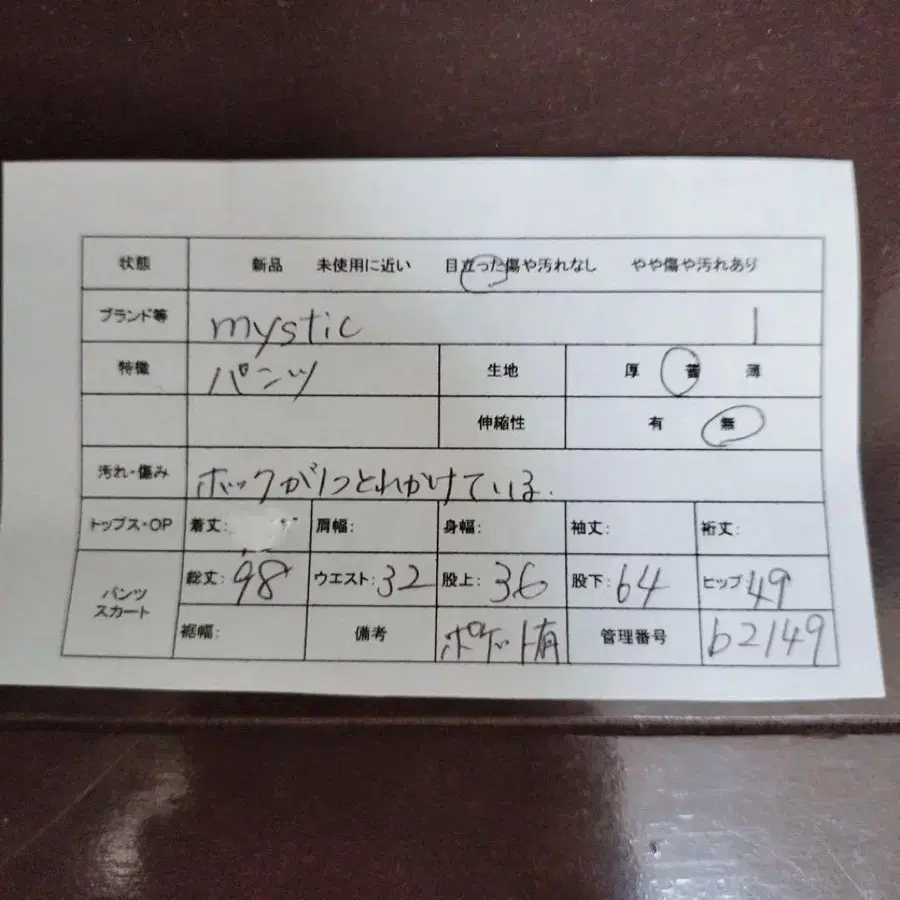 状態 新品 未使用に近い 目立った傷や汚れなし やや傷や汚れあり
ブランド等 mystic 1
特徴 パンツ 生地 厚 普 薄
伸縮性 有 無
汚れ・傷み ホックが1つとれかけている.
トップス・OP 着丈: 肩幅: 身幅: 袖丈: 裄丈:
パンツ スカート 総丈:98 ウエスト:32 股上:36 股下:64 ヒップ49
裾幅: 備考 ポケット有 管理番号 b2149